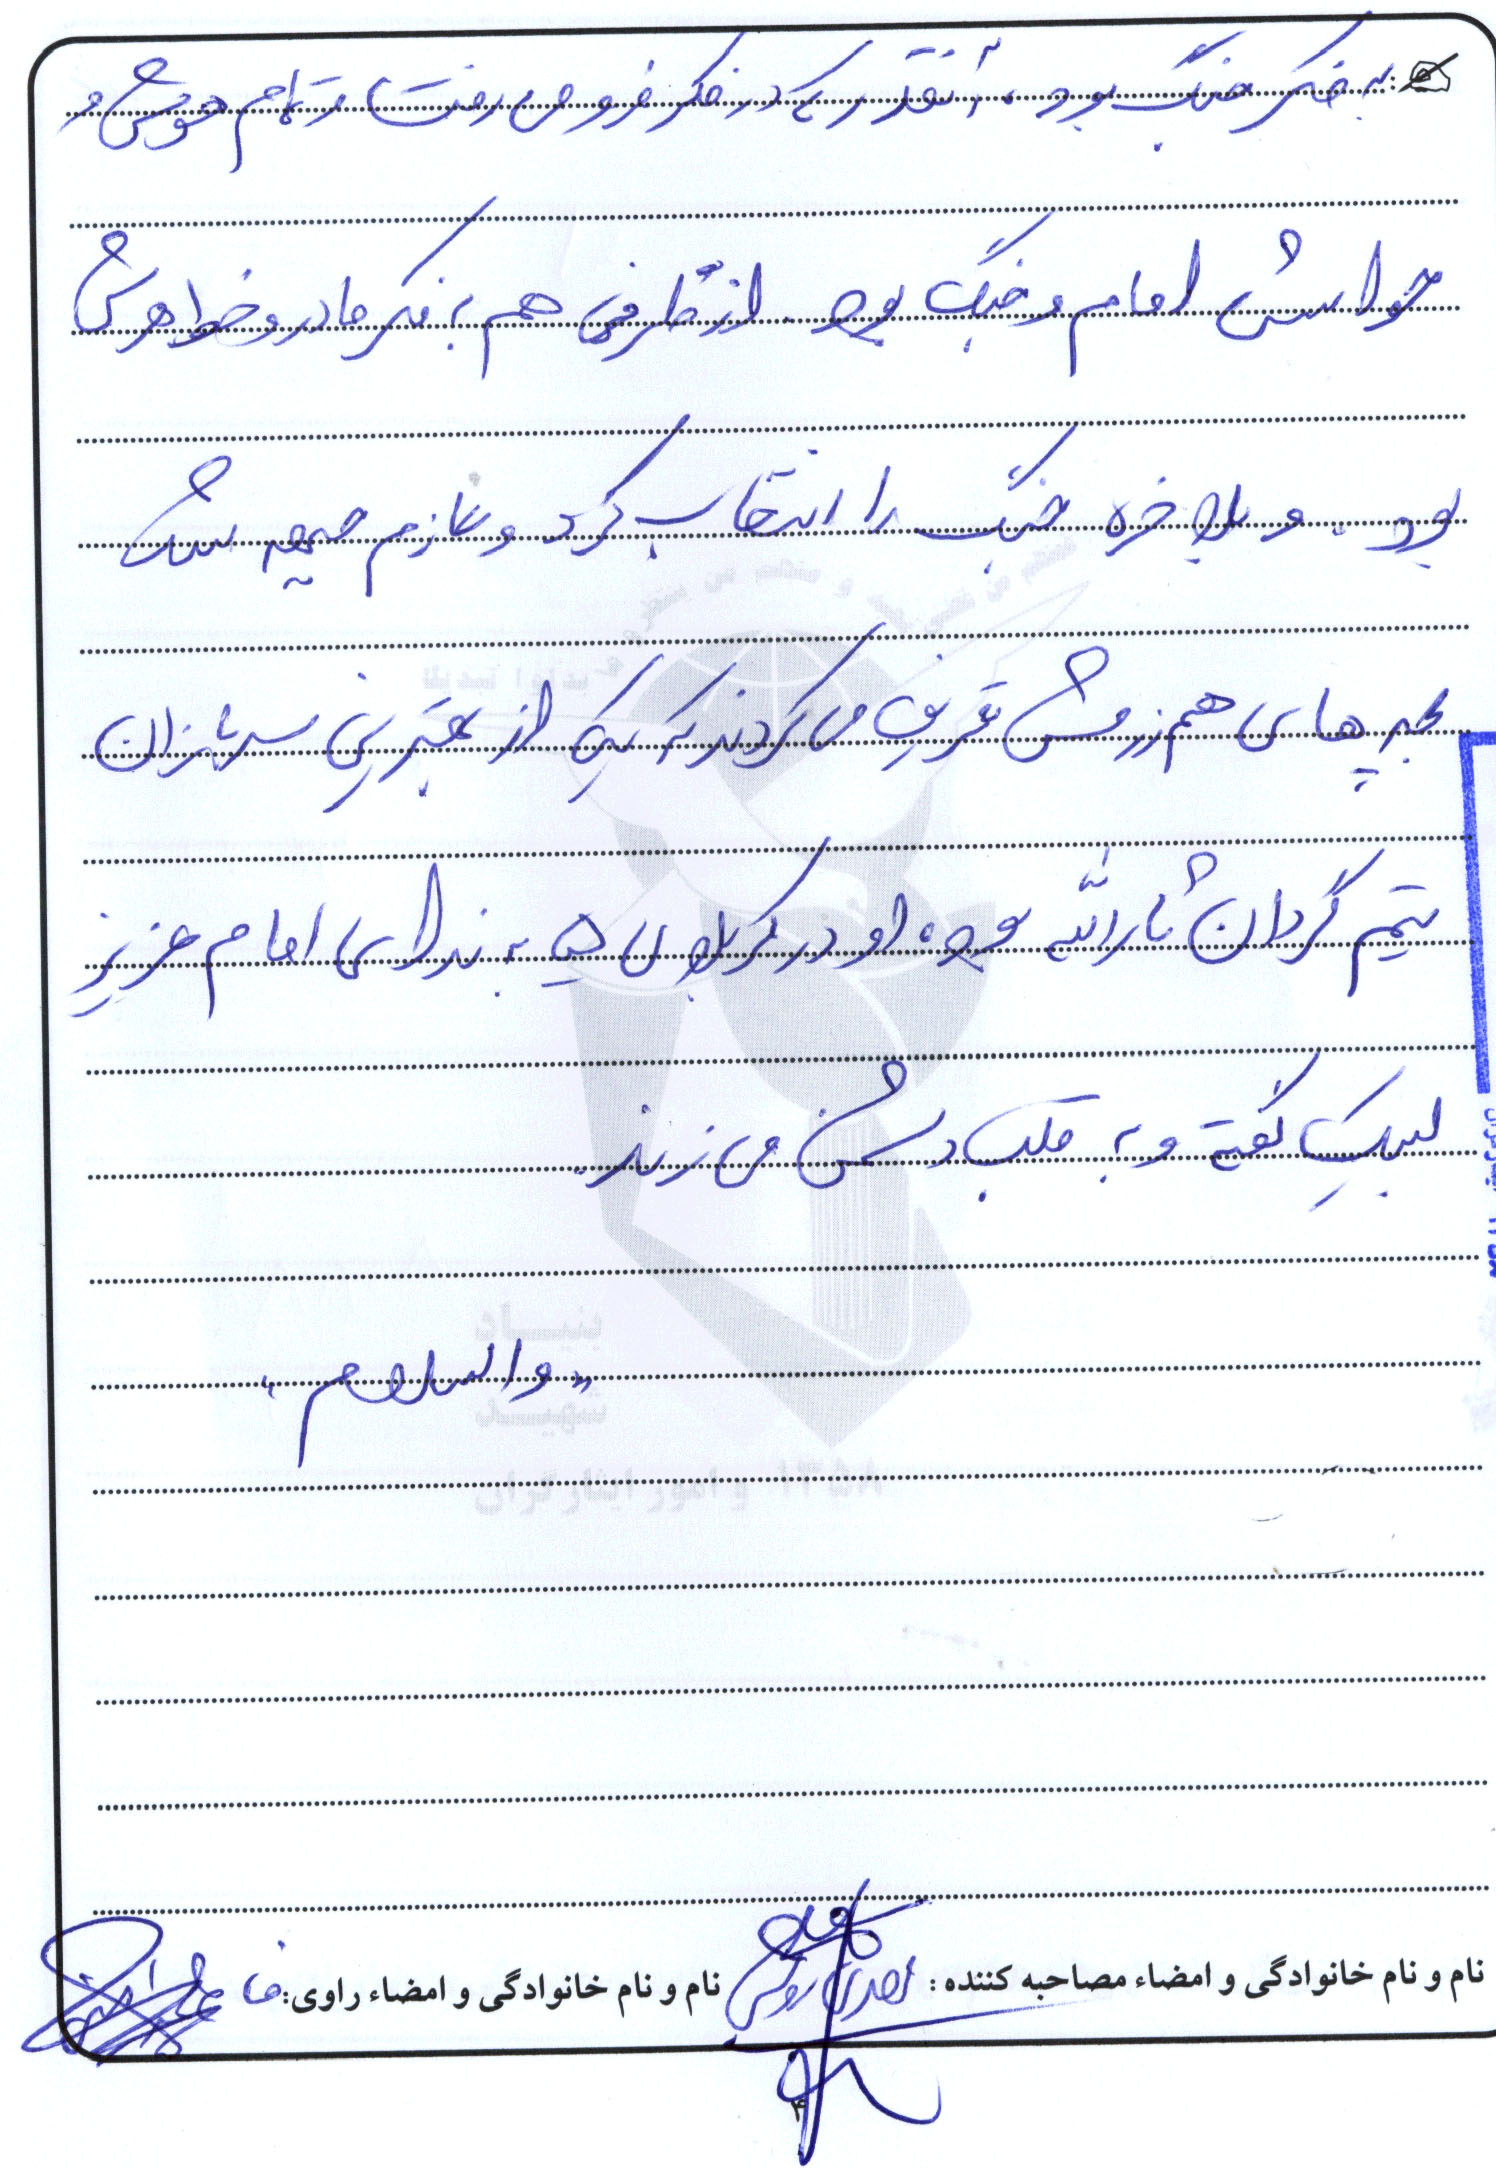 به فکر جنگ بود. آنقدر که در فکر فرو می رفت و تمام هوش و
حواسش امام و جنگ بود. از طرفی هم به فکر مادر و خواهرش
بود. و بلاخره جنگ را انتخاب کرد و عازم جبهه شد
بچه های هم رزمش تعریف می کردند که یکی از بهترین سربازان
تیم گردان ثارالله بود. او در کربلای ۵ به ندای امام عزیز
لبیک گفته و به قلب دشمن می زند.
"والسلام"
نام و نام خانوادگی و امضاء مصاحبه کننده: نام و نام خانوادگی و امضاء راوی:
۴
بنیاد
شهید
و امور ایثارگران ۱۳۵۸